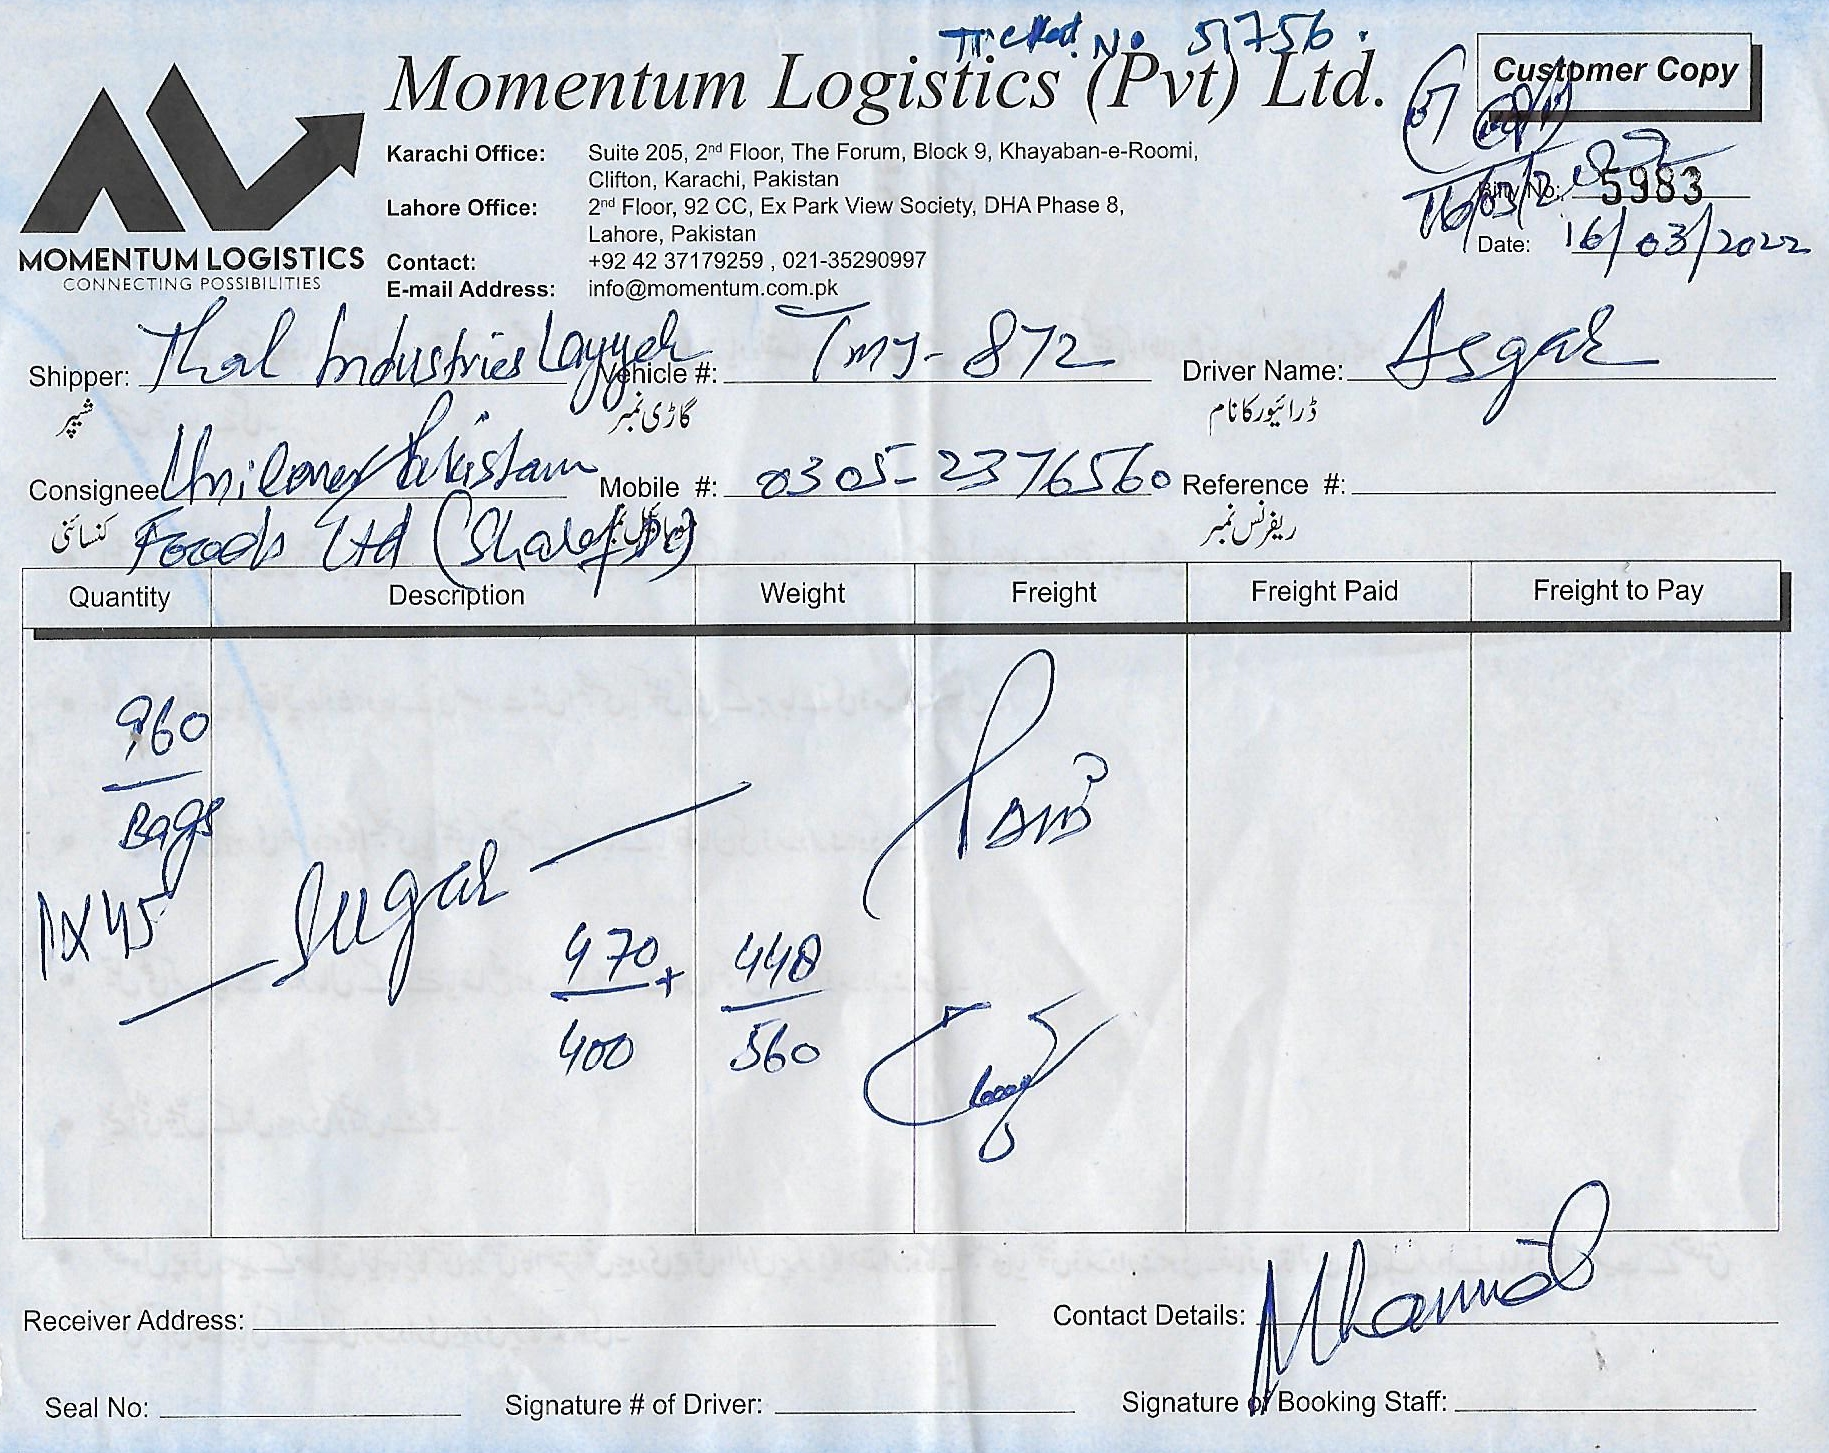 Ticket No 51756.
Momentum Logistics (Pvt) Ltd.
Customer Copy
MOMENTUM LOGISTICS
CONNECTING POSSIBILITIES
Karachi Office: Suite 205, 2nd Floor, The Forum, Block 9, Khayaban-e-Roomi,
Clifton, Karachi, Pakistan
Lahore Office: 2nd Floor, 92 CC, Ex Park View Society, DHA Phase 8,
Lahore, Pakistan
Contact: +92 42 37179259 , 021-35290997
E-mail Address: info@momentum.com.pk
Bilty No: 5983
Date: 16/03/2022
Shipper: Thal Industries Layyah Vehicle #: TMJ-872 Driver Name: Asgar
شیپر گاڑی نمبر ڈرائیور کا نام
Consignee Unilever Pakistan Mobile #: 0305-2376560 Reference #:
کنسائنی Foods Ltd ریفرنس نمبر
Quantity Description Weight Freight Freight Paid Freight to Pay
960
Bags
1X45
Sugar
470 + 448
400 560
Receiver Address: Contact Details:
Seal No: Signature # of Driver: Signature of Booking Staff: